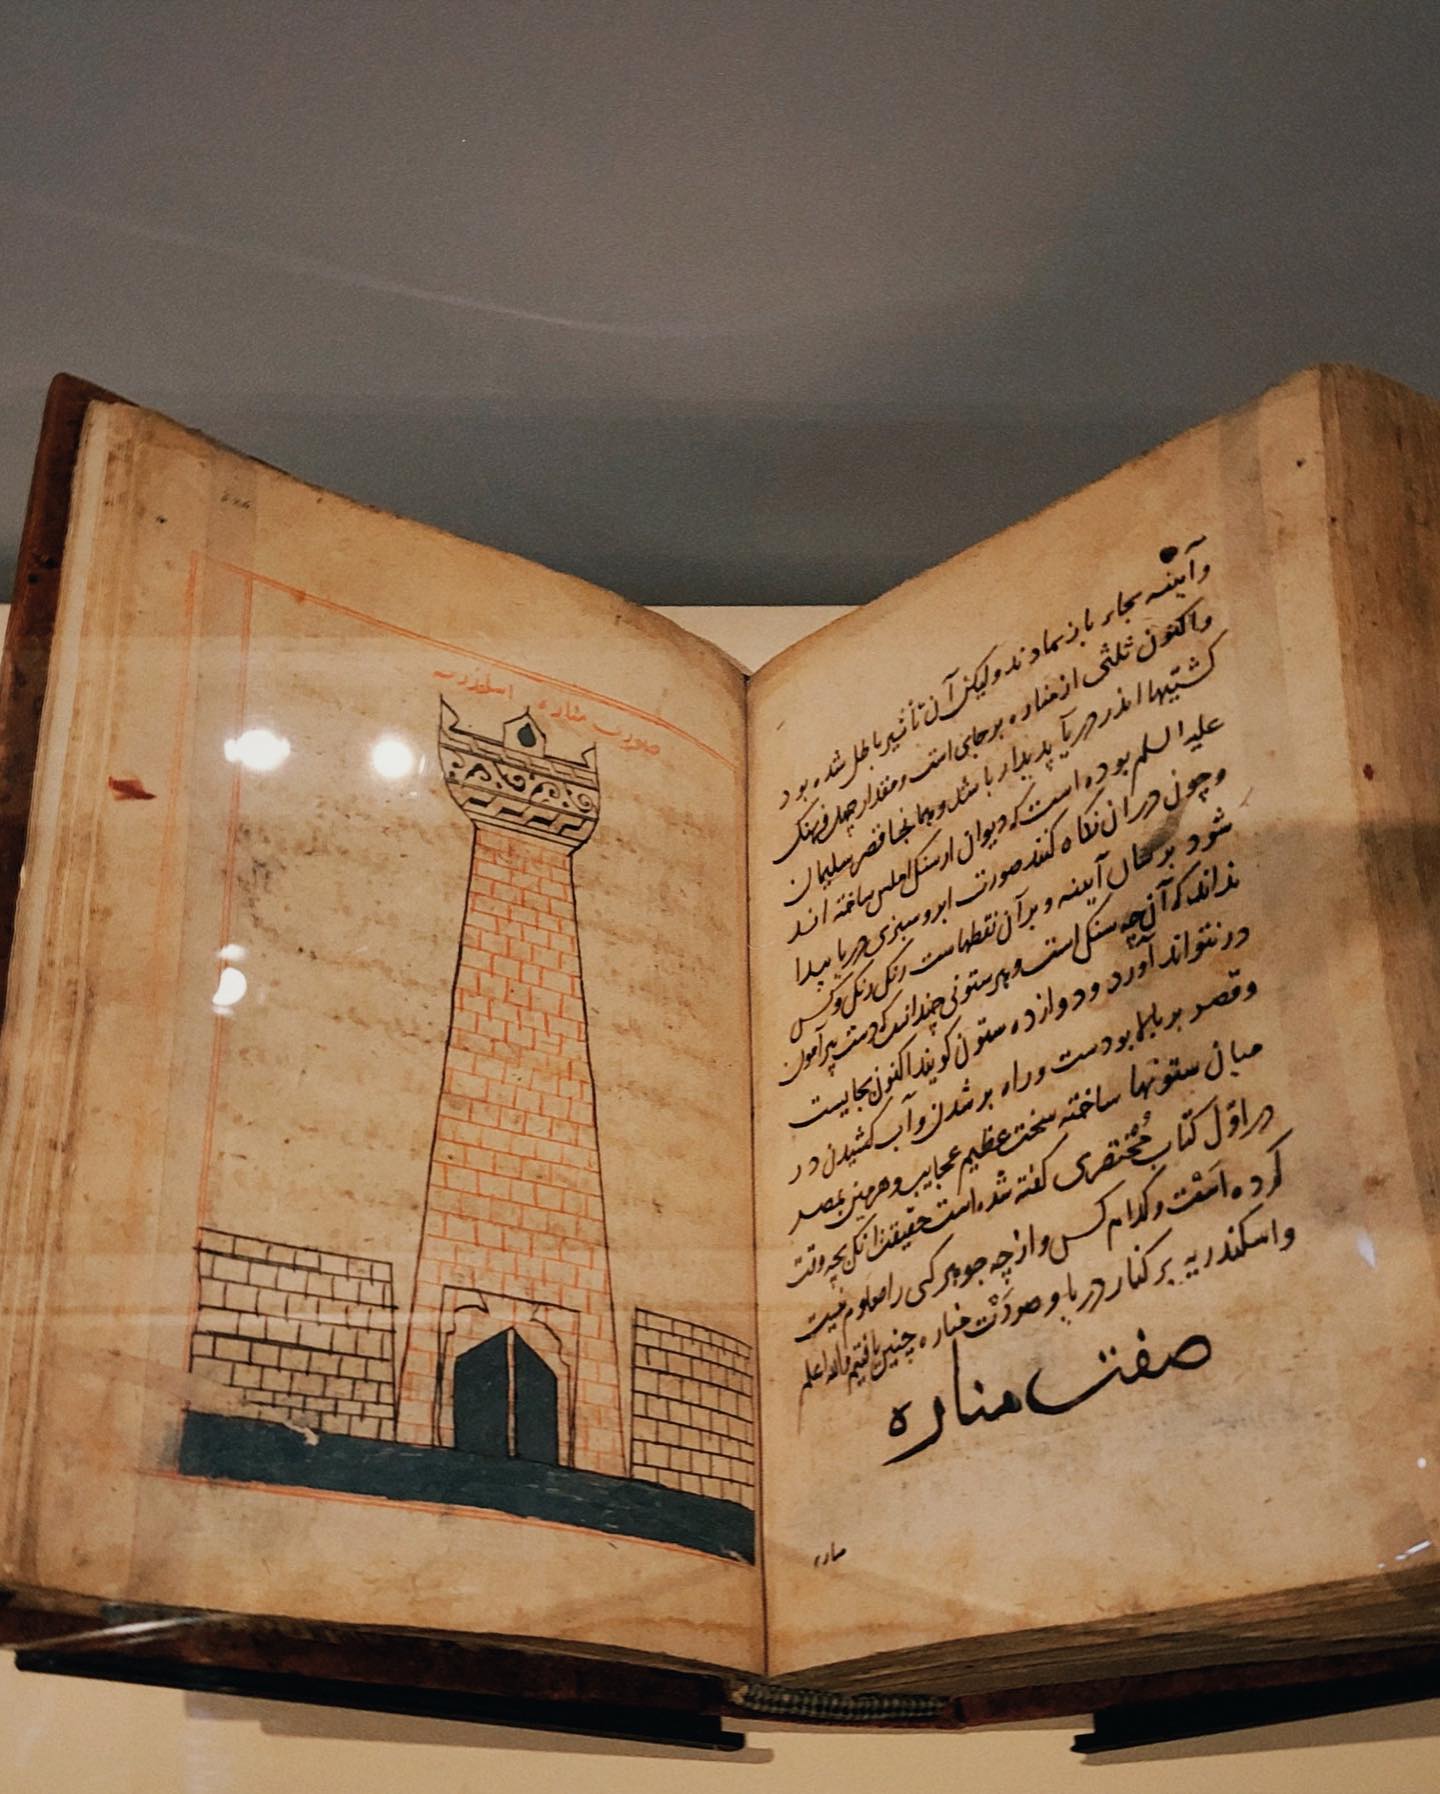 وآینه بجای باز نهادند ولیکن آن تأثیر باطل شده بود
واکنون ثلثی از مناره برجای است و مقدار چهل فرهنک
کشتیها اندر دریا پدیدار باشد و همانجا قصر سلیمان
علیه السلم بوده است که دیوان از سنک املس ساخته اند
وچون در ان نکاه کنند صورت ابر و سبزی دریا پیدا
شود برسان آینه و بر آن نقطهاست رنک رنک وکس
نداند که آن چه سنک است و هر ستونی چندانک دست پیرامون
در نتواند آورد و دوازده ستون کویند اکنون بجایست
وقصر بر بالا بودست و راه بر شدن و آب کشیدن در
میان ستونها ساخته سخت عظیم عجایب و هرمین بمصر
در اوّل کتاب مُختصری کفته شده است حقیقت انک بچه وقت
کرده اَست و کدام کس و از چه جوهر کسی را معلوم نیست
واسکندریه بر کنار دریا و صورَت مناره چنین یافتیم والله اعلم
صفت مناره
صورت مناره اسکندریه